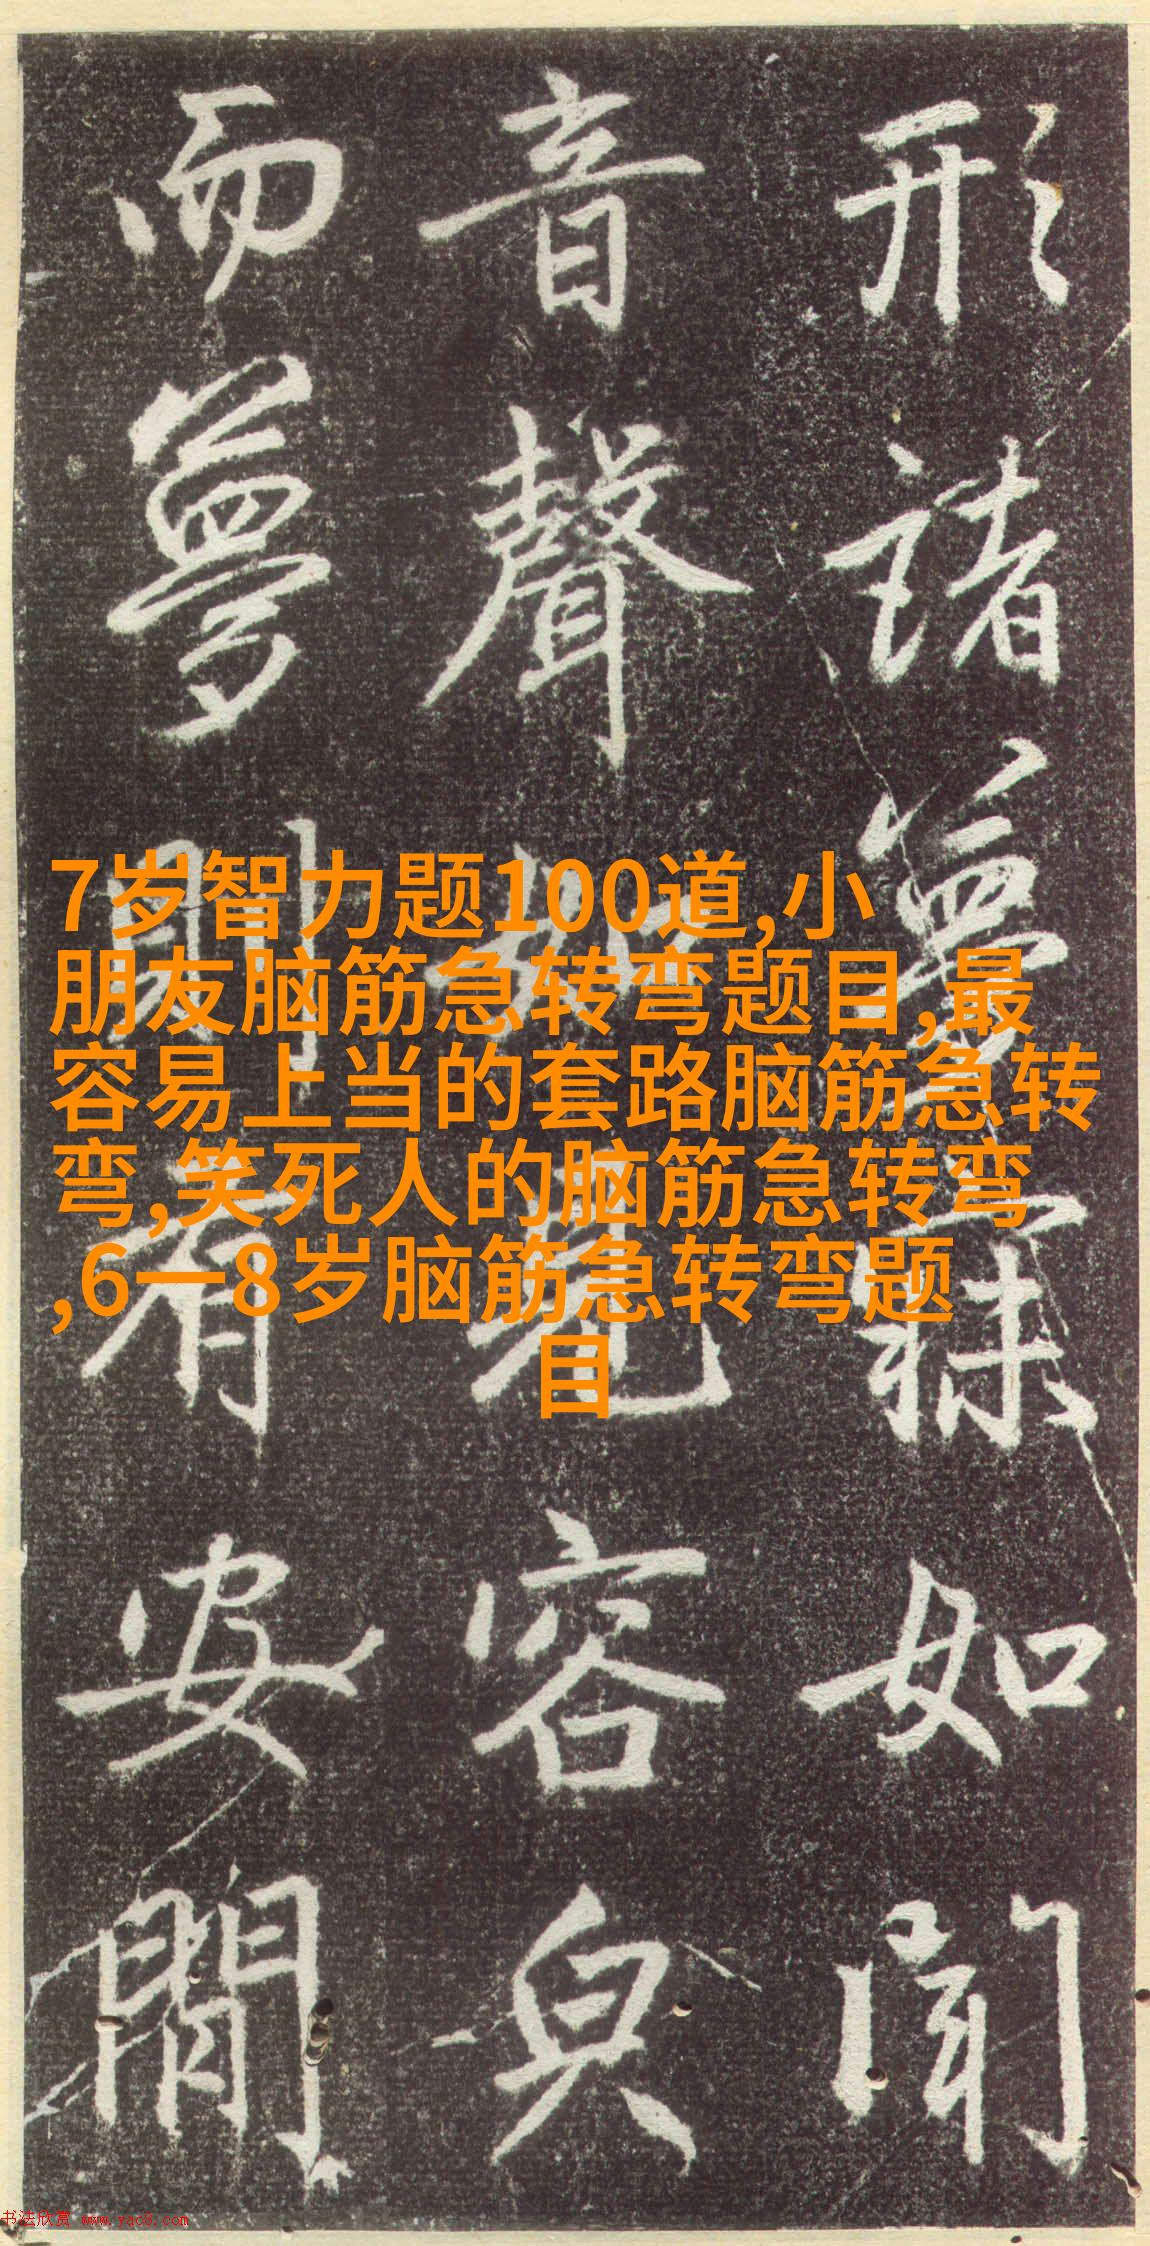 形諸夢寐如聞
音聲如見容
而夢則有安閒
7岁智力题100道,小
朋友脑筋急转弯题目,最
容易上当的套路脑筋急转
弯,笑死人的脑筋急转弯
,6一8岁脑筋急转弯题
目
书法欣赏 www.yac8.com